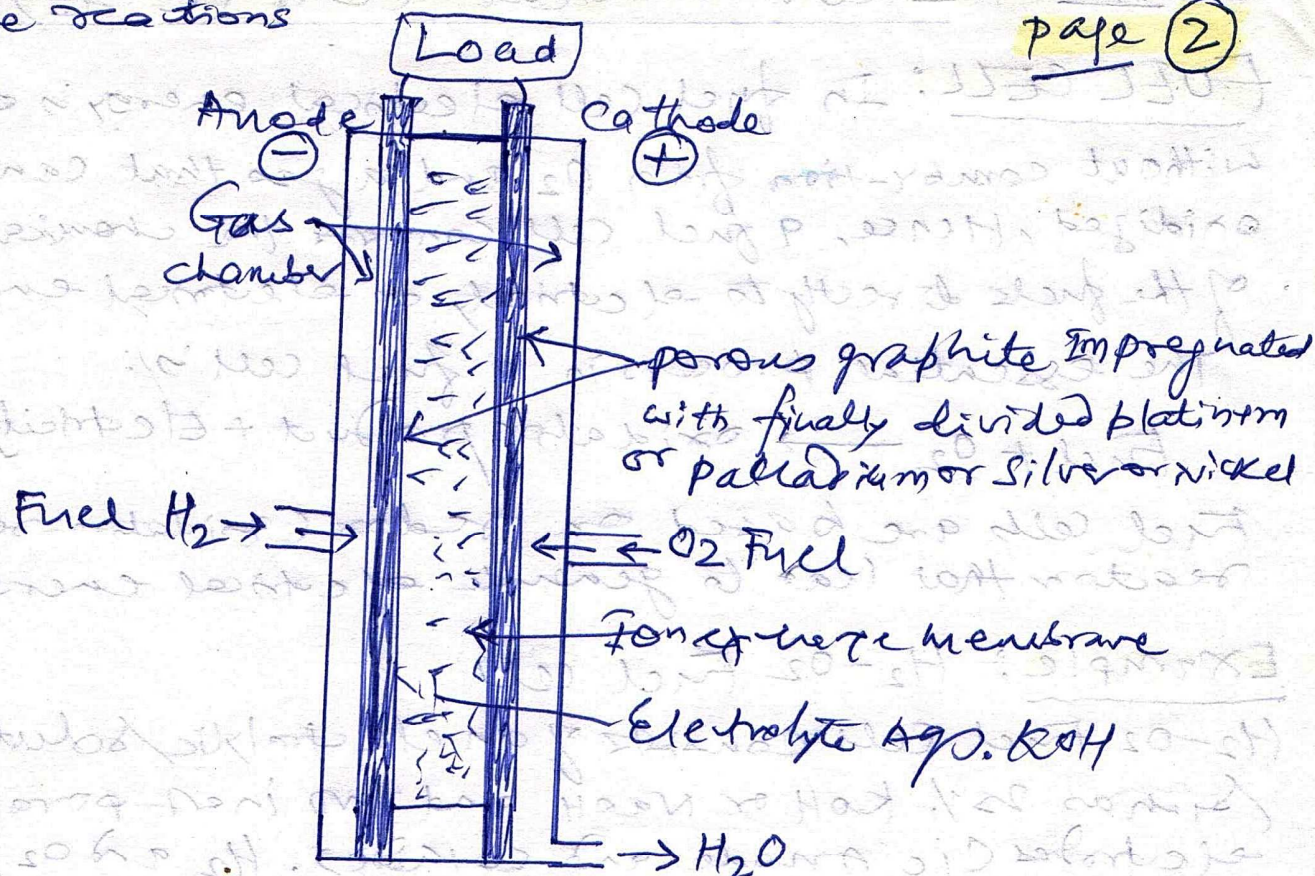 e reactions
page 2
Load
Anode
Cathode
−
+
Gas
chamber
porous graphite Impregnated
with finally divided platinum
or palladium or silver or nickel
Fuel H2 →
← O2 Fuel
membrane
Eletrolyte Aqs. KOH
→ H2O